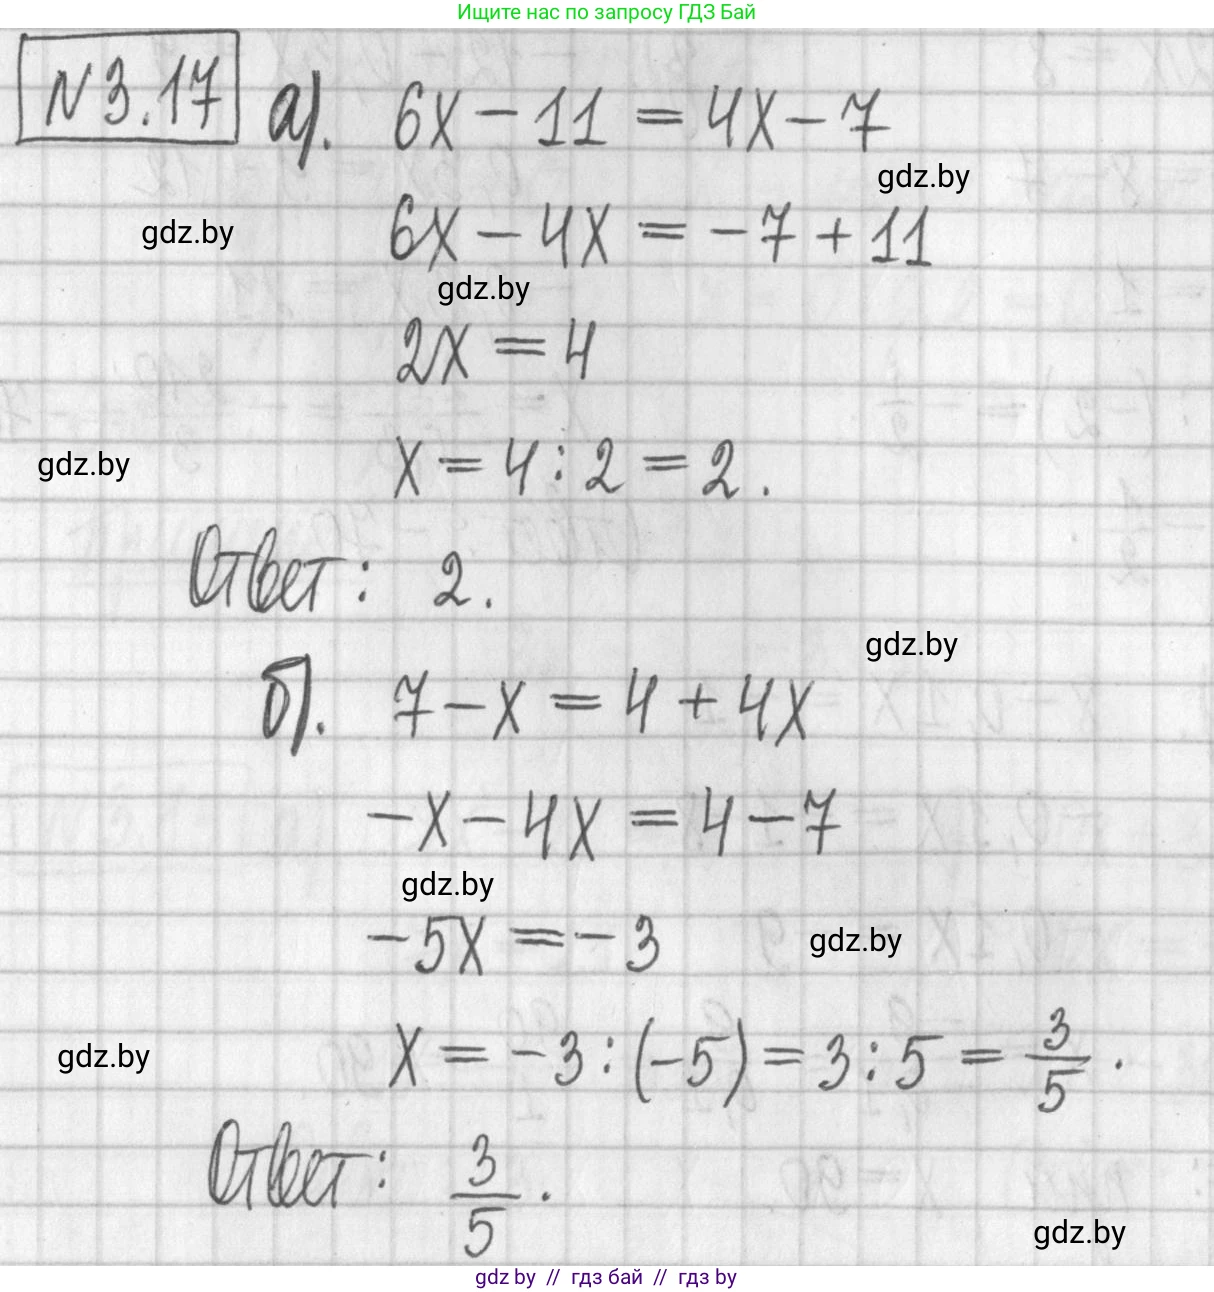 Ищите нас по запросу ГДЗ Бай
N 3.17 а). 6x - 11 = 4x - 7
gdz.by
gdz.by
6x - 4x = -7 + 11
gdz.by
2x = 4
gdz.by
x = 4 : 2 = 2.
Ответ: 2.
gdz.by
б). 7 - x = 4 + 4x
-x - 4x = 4 - 7
gdz.by
-5x = -3
gdz.by
gdz.by
x = -3 : (-5) = 3 : 5 = 3/5.
Ответ: 3/5.
gdz.by
gdz by // гдз бай // гдз by